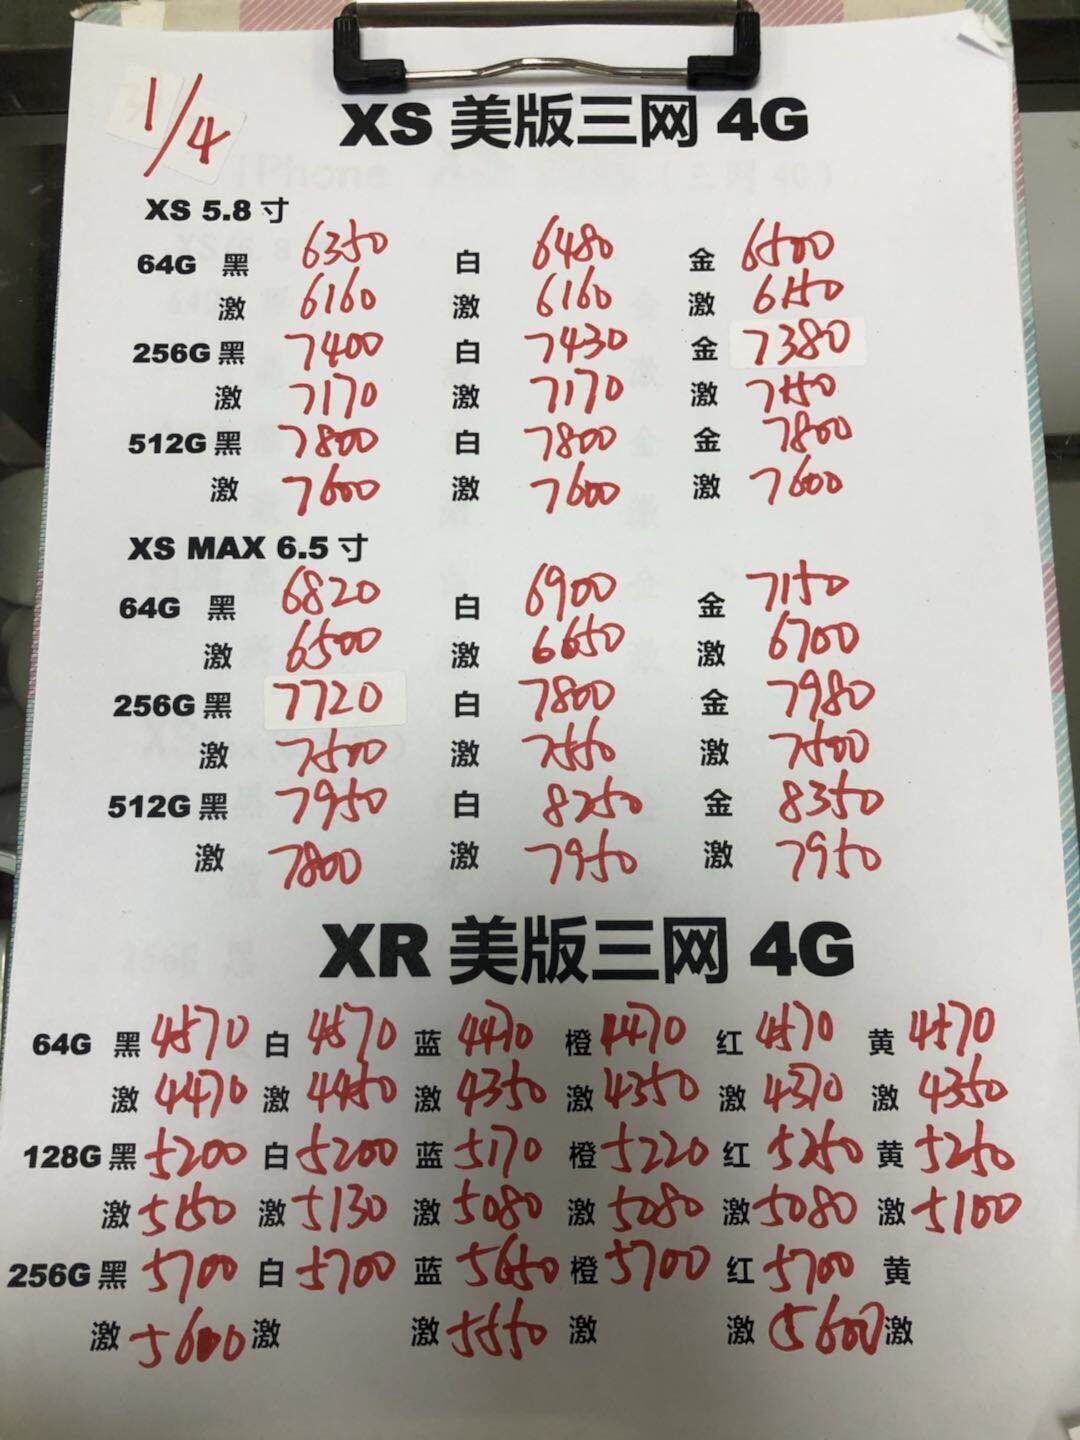 1/4
XS 美版三网 4G
XS 5.8 寸
64G 黑 6350 白 6480 金 6500
激 6160 激 6160 激 6150
256G 黑 7400 白 7430 金 7380
激 7170 激 7170 激 7150
512G 黑 7800 白 7800 金 7800
激 7600 激 7600 激 7600
XS MAX 6.5 寸
64G 黑 6820 白 6900 金 7150
激 6500 激 6650 激 6700
256G 黑 7720 白 7800 金 7980
激 7500 激 7550 激 7500
512G 黑 7950 白 8250 金 8350
激 7800 激 7950 激 7950
XR 美版三网 4G
64G 黑 4570 白 4570 蓝 4470 橙 4470 红 4570 黄 4570
激 4470 激 4450 激 4350 激 4350 激 4370 激 4350
128G 黑 5200 白 5200 蓝 5170 橙 5220 红 5250 黄 5250
激 5150 激 5130 激 5080 激 5080 激 5080 激 5100
256G 黑 5700 白 5700 蓝 5650 橙 5700 红 5700 黄
激 5600 激 激 5550 激 激 5600 激